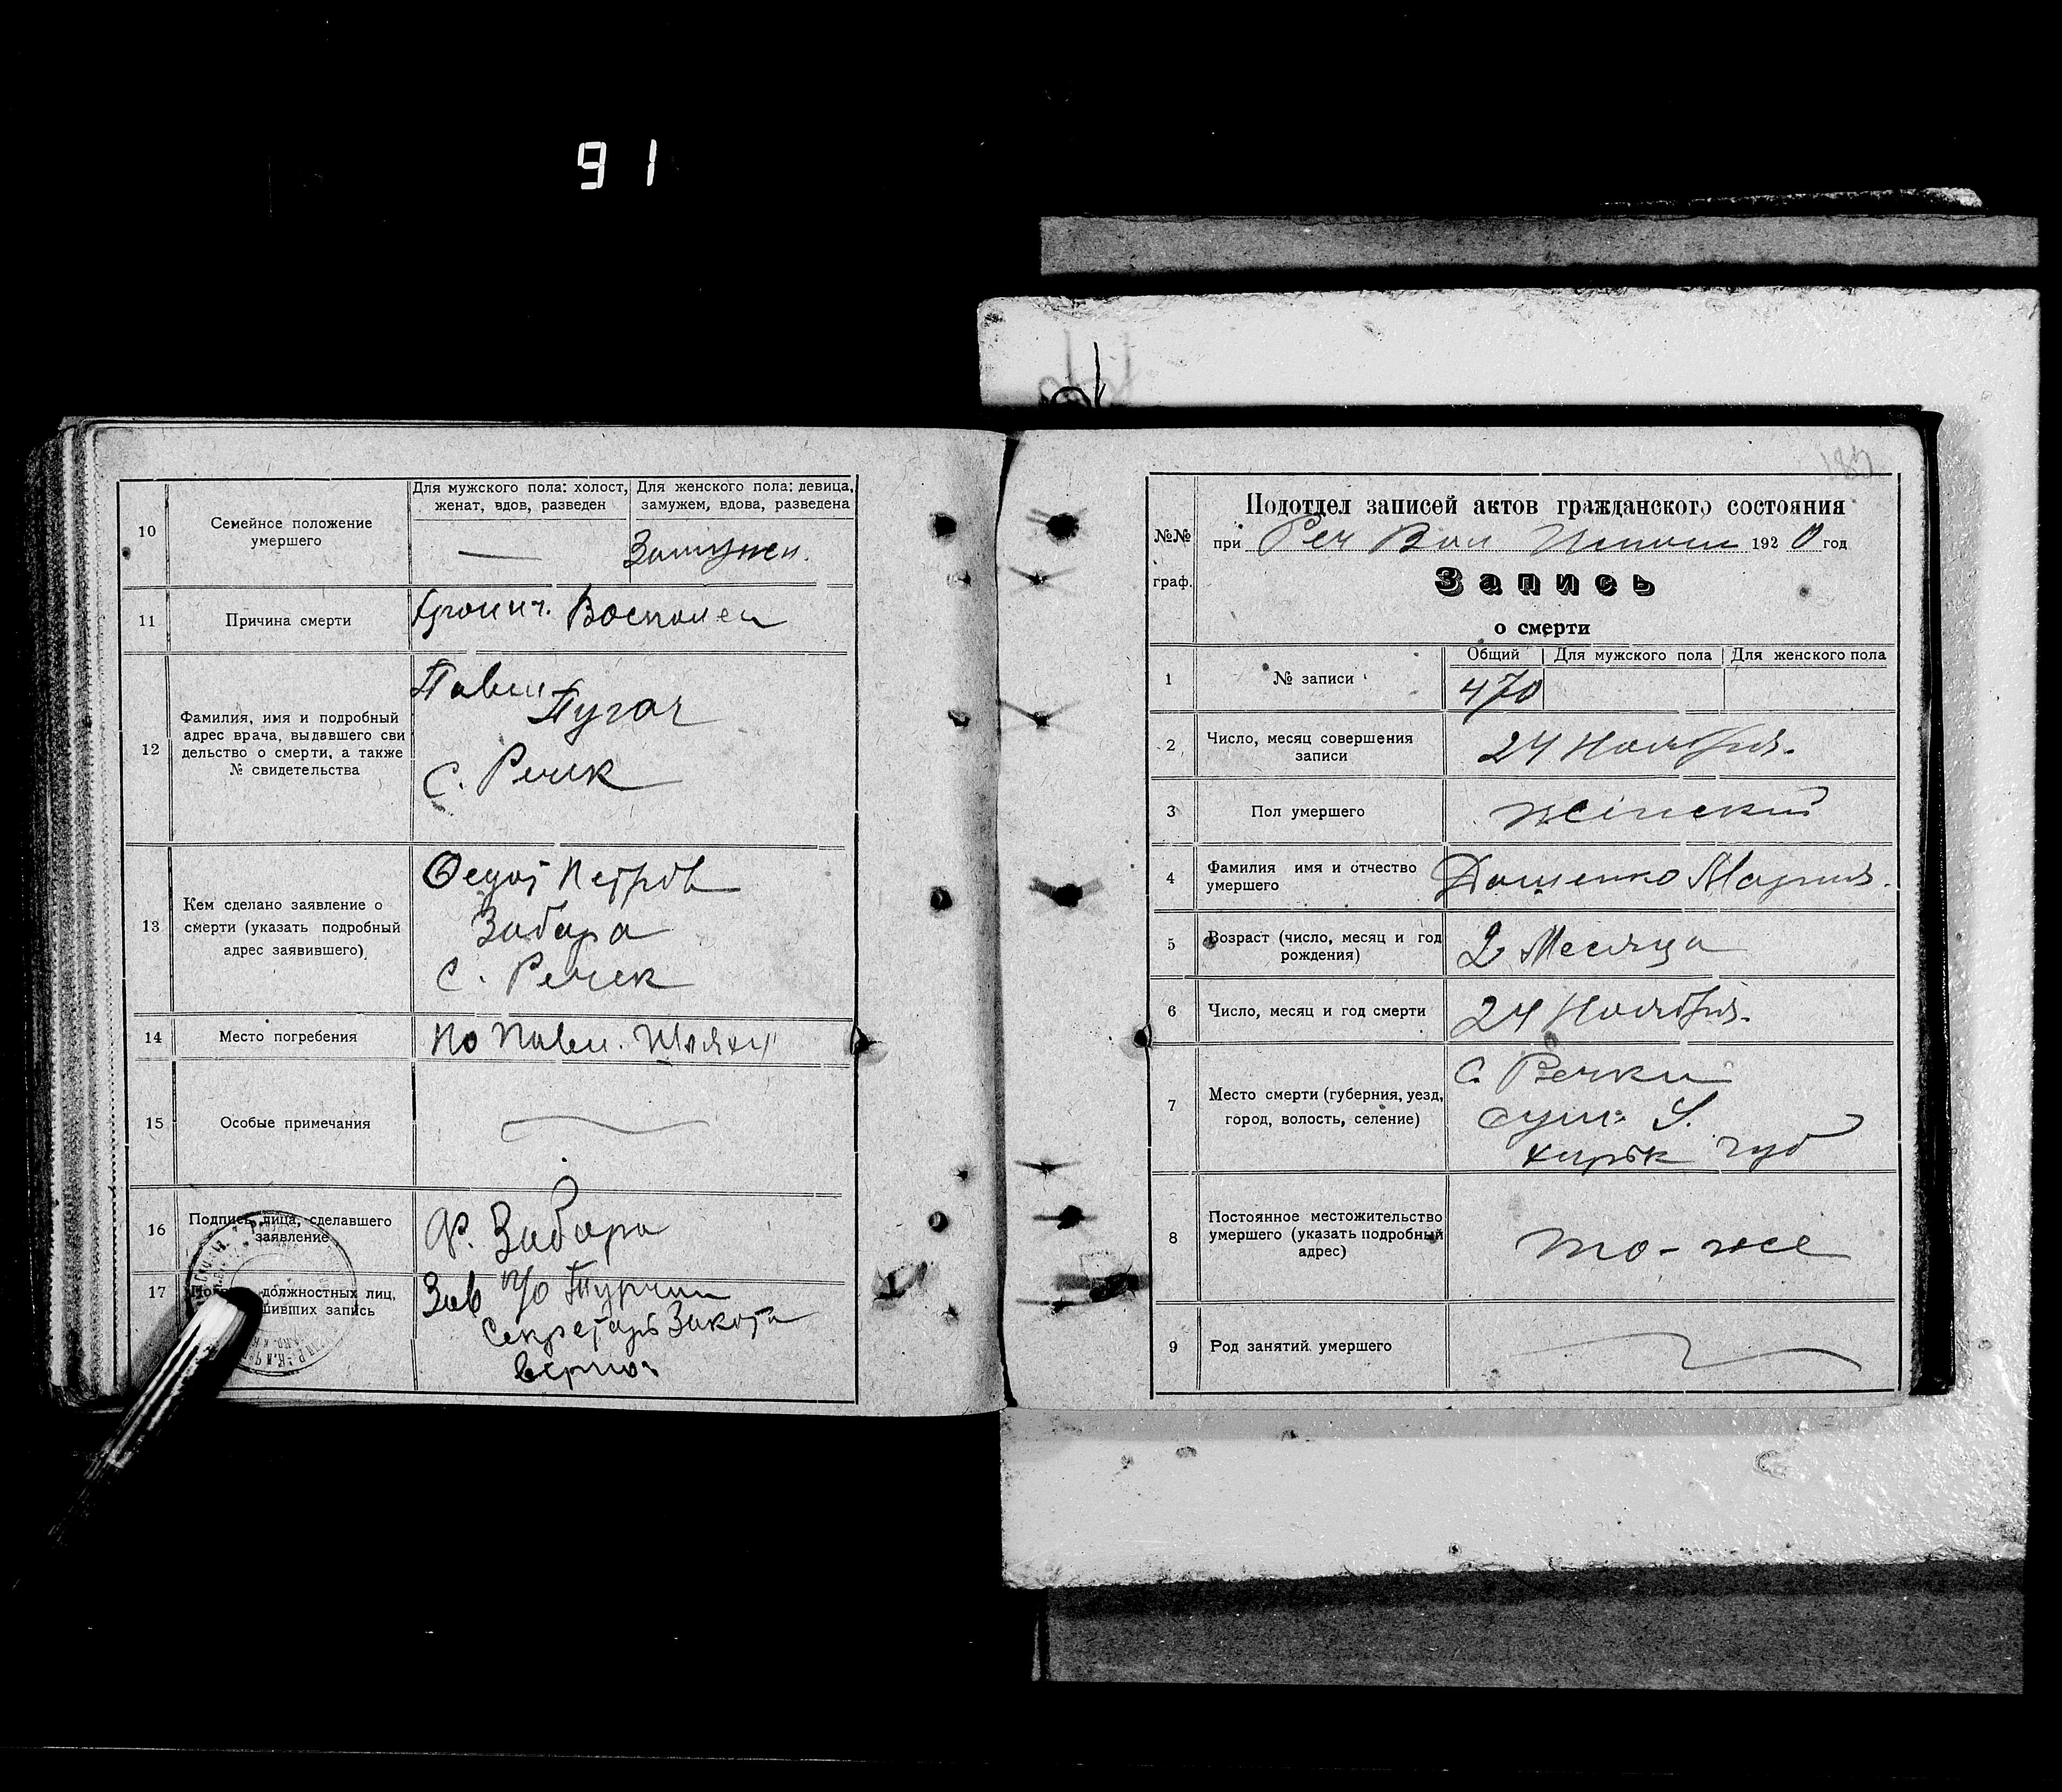 91
10
Семейное положение
умершего
Для мужского пола: холост,
женат, вдов, разведен
Для женского пола: девица,
замужем, вдова, разведена
Замужем.
11
Причина смерти
12
Фамилия, имя и подробный
адрес врача, выдавшего сви
дельство о смерти, а также
№ свидетельства
Павел
Пугач
С. Речек
13
Кем сделано заявление о
смерти (указать подробный
адрес заявившего)
Федот Петров
Забара
С. Речек
14
Место погребения
По Павл.
15
Особые примечания
16
Подпись лица, сделавшего
заявление
Ф. Забара
17
должностных лиц,
запись
Зав п/о Турчин
Секретарь
верно:
Подотдел записей актов гражданского состояния
№№
граф.
при Реч Вол 1920 год
Запись
о смерти
1
№ записи
Общий
Для мужского пола
Для женского пола
470
2
Число, месяц совершения
записи
24 Ноября.
3
Пол умершего
жінский
4
Фамилия имя и отчество
умершего
Дашенко Мария.
5
Возраст (число, месяц и год
рождения)
2 Месяца
6
Число, месяц и год смерти
24 Ноября.
7
Место смерти (губерния, уезд,
город, волость, селение)
С. Речки
сум. У.
харьк губ
8
Постоянное местожительство
умершего (указать подробный
адрес)
то-же
9
Род занятий умершего